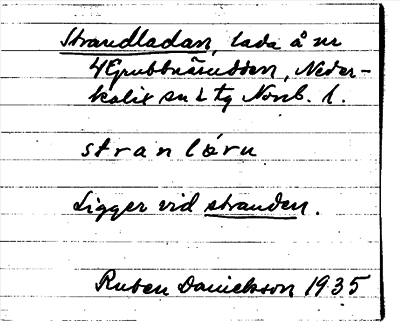 Strandladan, lada å nr
4 Grubbnäsudden, Neder-
kalix sn o tg Norrb. l.
stranlǫ́ru
Ligger vid stranden.
Ruben Danielsson 1935